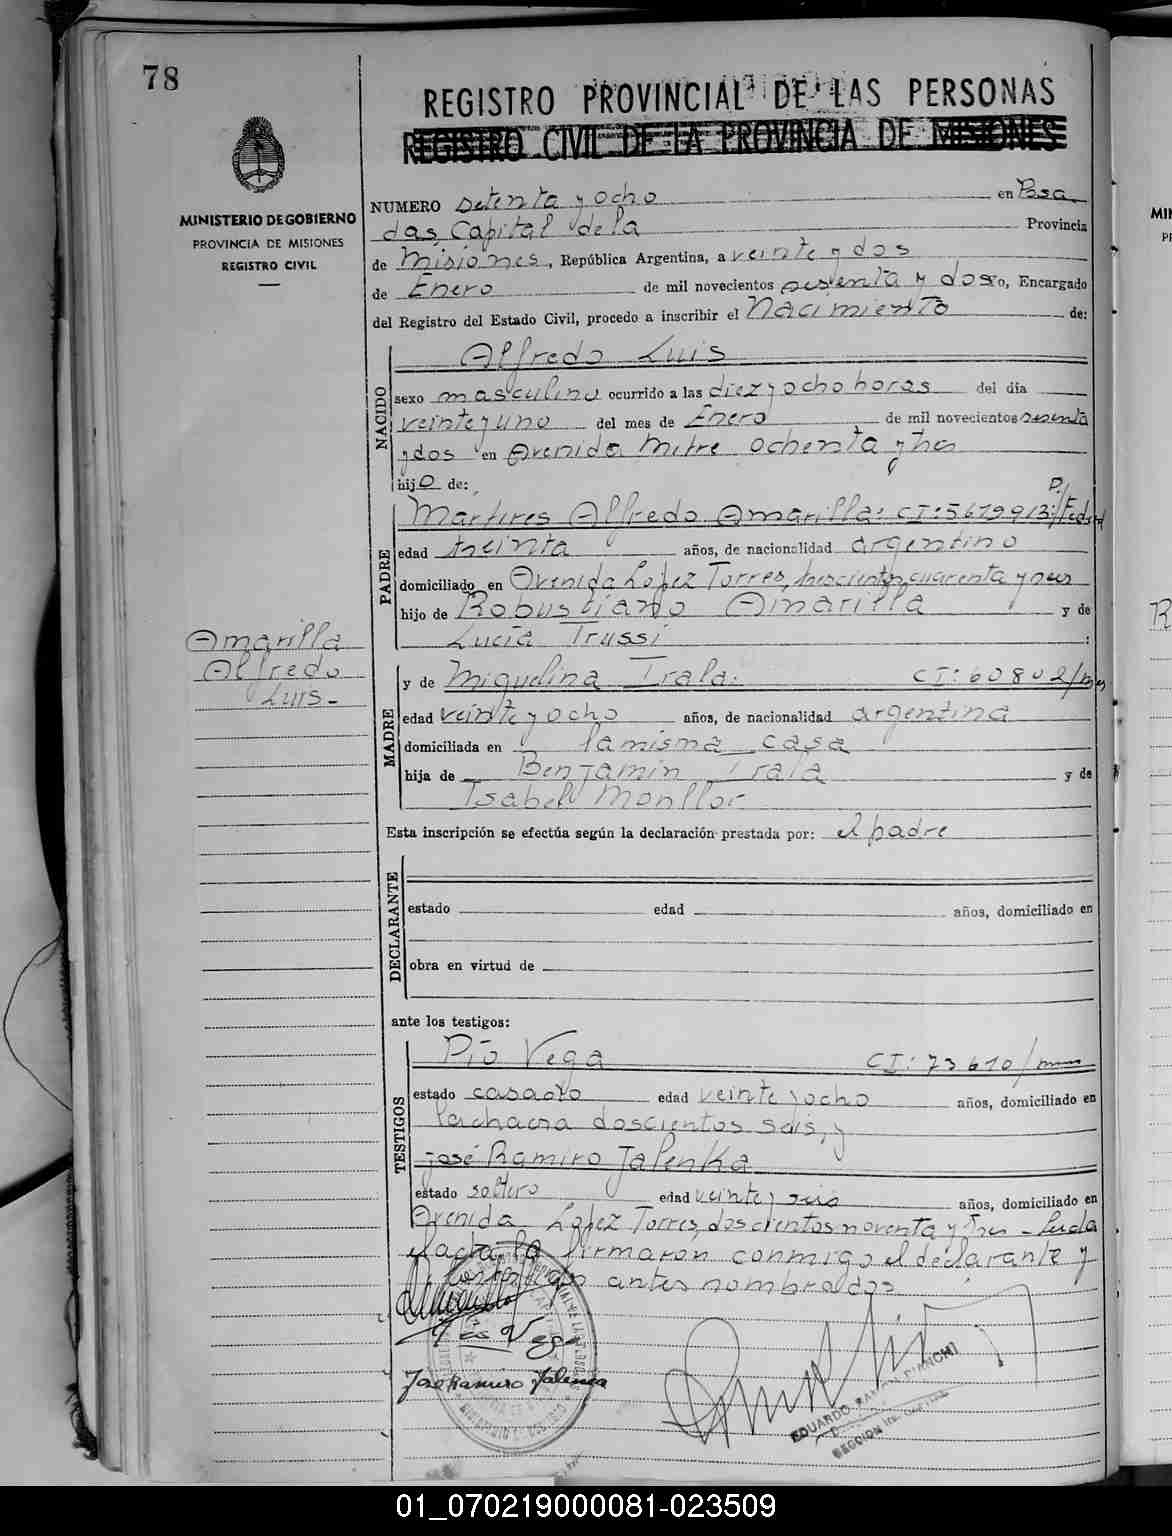 78
REGISTRO PROVINCIAL DE LAS PERSONAS
REGISTRO CIVIL DE LA PROVINCIA DE MISIONES
MINISTERIO DE GOBIERNO
PROVINCIA DE MISIONES
REGISTRO CIVIL
NUMERO Setenta y ocho en Posa
das, Capital de la Provincia
de Misiones, República Argentina, a veinte y dos
de Enero de mil novecientos sesenta y dos, Encargado
del Registro del Estado Civil, procedo a inscribir el Nacimiento de:
NACIDO
Alfredo Luis
sexo masculino ocurrido a las diez y ocho horas del día
veinte y uno del mes de Enero de mil novecientos sesenta
y dos en Avenida Mitre ochenta y tres
hijo de:
PADRE
Martires Alfredo Amarilla: CI: 5679913: P./Federal
edad treinta años, de nacionalidad argentino
domiciliado en Avenida López Torres, trescientos cuarenta y seis
hijo de Robustiano Amarilla y de
Lucia Trussi :
Amarilla
Alfredo
Luis-
MADRE
y de Miguelina Irala: CI: 60802/mnes
edad veinte y ocho años, de nacionalidad argentina
domiciliada en la misma casa
hija de Benjamin Irala y de
Isabel Monllor
Esta inscripción se efectúa según la declaración prestada por: el padre
DECLARANTE
estado edad años, domiciliado en
obra en virtud de
ante los testigos:
TESTIGOS
Pío Vega CI: 73610/
estado casado edad veinte y ocho años, domiciliado en
la chacra doscientos seis, y
José Ramiro Jalenka
estado soltero edad veinte y seis años, domiciliado en
Avenida López Torres, doscientos noventa y tres - Leida
el acta, la firmaron conmigo el declarante y
testigos antes nombrados
Pío Vega
José Ramiro Jalenka
EDUARDO RAMON BIANCHI
01_070219000081-023509